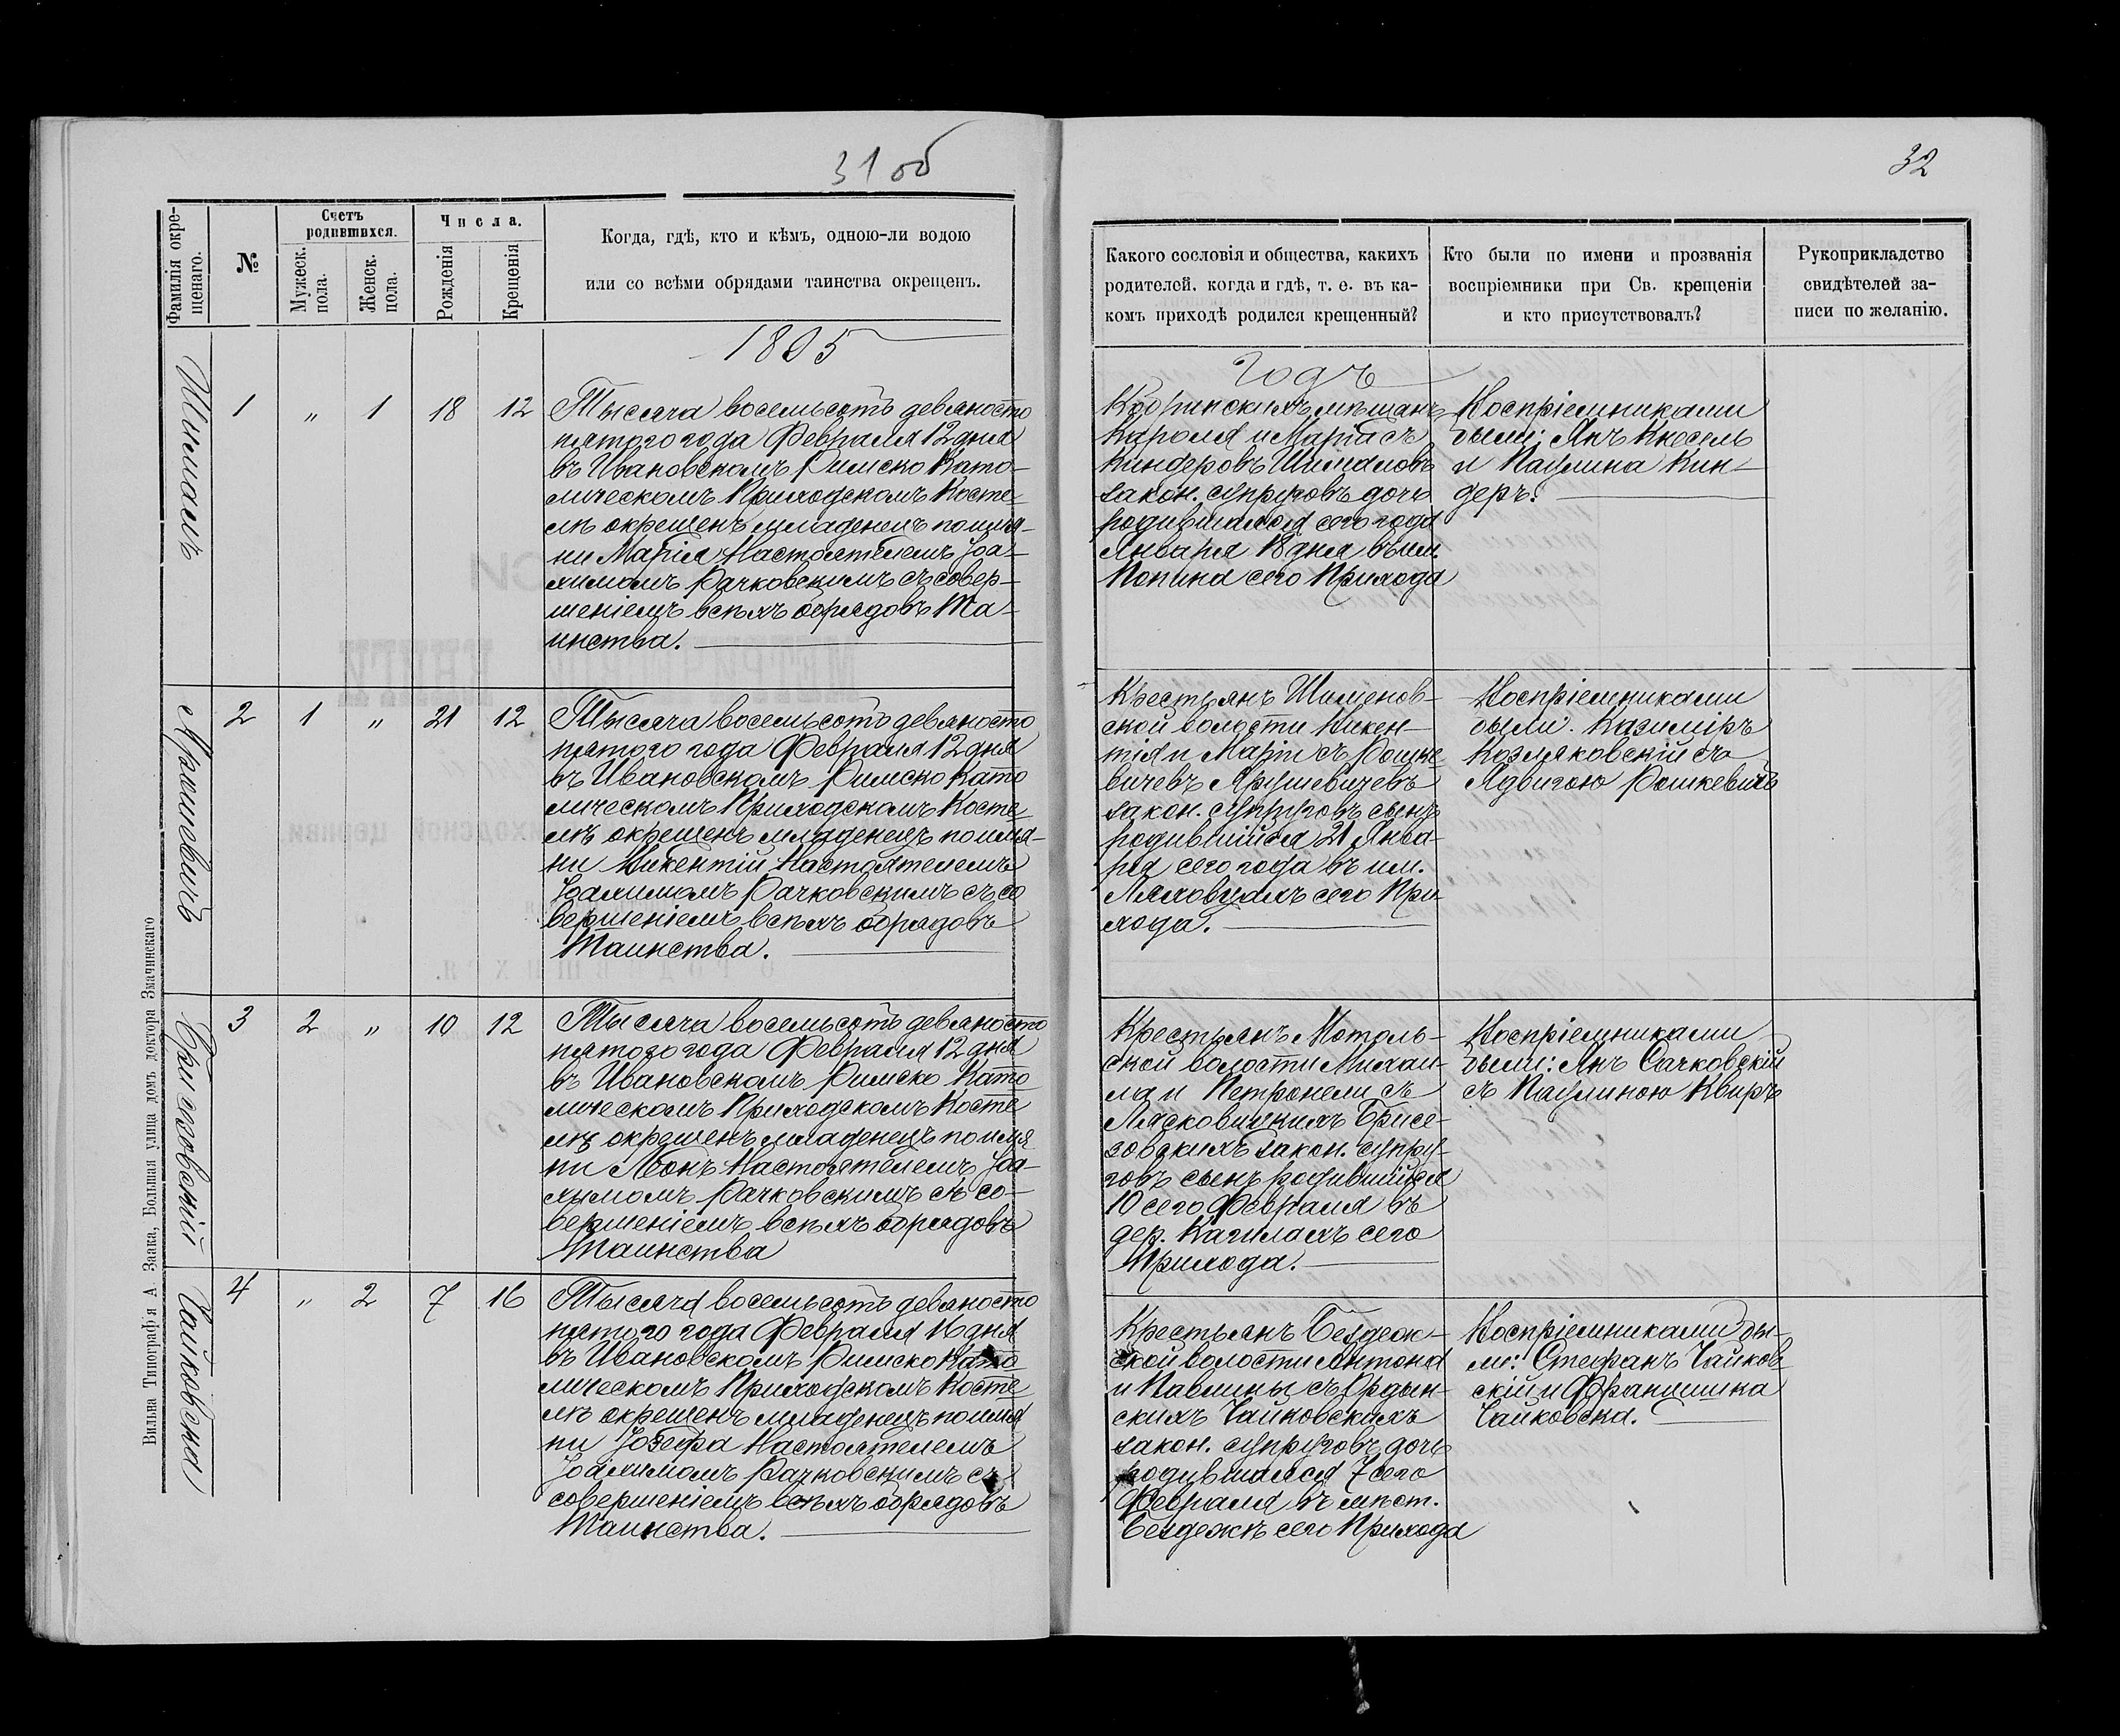 31 об
Фамилія окре-
щенаго.
№
Счетъ
родившихся.
Мужеск.
пола.
Женск.
пола.
Числа.
Рожденія
Крещенія
Когда, гдѣ, кто и кѣмъ, одною-ли водою
или со всѣми обрядами таинства окрещенъ.
1895
Шиманъ
1 " 1 18 12
Тысяча восемьсотъ девяносто
пятого года Февраля 12 дня
въ Ивановскомъ Римско Като-
лическомъ Приходскомъ Косте
лѣ окрещенъ младенецъ по имя-
ни Марія Настоятелемъ Іоа-
химомъ Рачковскимъ съ совер-
шеніемъ всѣхъ обрядовъ Та-
инства.
Ярушевичъ
2 1 " 21 12
Тысяча восемьсотъ девяносто
пятого года Февраля 12 дня
въ Ивановскомъ Римско Като
лическомъ Приходскомъ Косте
лѣ окрещенъ младенецъ по имя-
ни Викентій Настоятелемъ
Іоахимомъ Рачковскимъ съ со
вершеніемъ всѣхъ обрядовъ
Таинства.
Брисговскій
3 2 " 10 12
Тысяча восемьсотъ девяносто
пятого года Февраля 12 дня
въ Ивановскомъ Римско Като
лическомъ Приходскомъ Косте
лѣ окрещенъ младенецъ по имя
ни Леонъ Настоятелемъ Іоа-
химомъ Рачковскимъ съ со-
вершеніемъ всѣхъ обрядовъ
Таинства
Чайковска
4 " 2 7 16
Тысяча восемьсотъ девяносто
пятого года Февраля 16 дня
въ Ивановскомъ Римско Като
лическомъ Приходскомъ Косте
лѣ окрещенъ младенецъ по имя
ни Іозефа Настоятелемъ
Іоахимомъ Рачковскимъ съ
совершеніемъ всѣхъ обрядовъ
Таинства.
Вильна Типографія А. Заака, Большая улица домъ доктора Змачинскаго
32
Какого сословія и общества, какихъ
родителей, когда и гдѣ, т. е. въ ка-
комъ приходѣ родился крещенный?
Кто были по имени и прозванія
воспріемники при Св. крещеніи
и кто присутствовалъ?
Рукоприкладство
свидѣтелей за-
писи по желанію.
Годъ
Кобринскихъ мѣщанъ
Кароля и Маріи съ
Киндеровъ Шимановъ
закон. супруговъ дочь
родившаяся сего года
Января 18 дня въ им.
Попина сего Прихода
Воспріемниками
были: Янъ Кнесель
и Паулина Кин-
деръ.
Крестьянъ
ской волости Викен-
тія и Маріи съ Рошке
вичевъ Ярушевичевъ
закон. супруговъ сынъ
родившійся 21 Янва-
ря сего года въ им.
Ляховцахъ сего При-
хода.
Воспріемниками
были: Казиміръ
Козляковскій съ
Ядвигою Рошкевичъ
Крестьянъ Мотоль-
ской волости Михаи-
ла и Петронели съ
Лясковичкихъ Брисе-
говскихъ закон. супру-
говъ сынъ родившійся
10 сего Февраля въ
дер. Качилахъ сего
Прихода.
Воспріемниками
были: Янъ Сачковскій
съ Паулиною Квиръ
Крестьянъ Бездеж-
ской волости Антона
и Павлины съ Ордын-
скихъ Чайковскихъ
закон. супруговъ дочь
родившаяся 7 сего
Февраля въ мѣст.
Бездежѣ сего Прихода
Воспріемниками бы-
ли: Стефанъ Чайков
скій и Францишка
Чайковска.